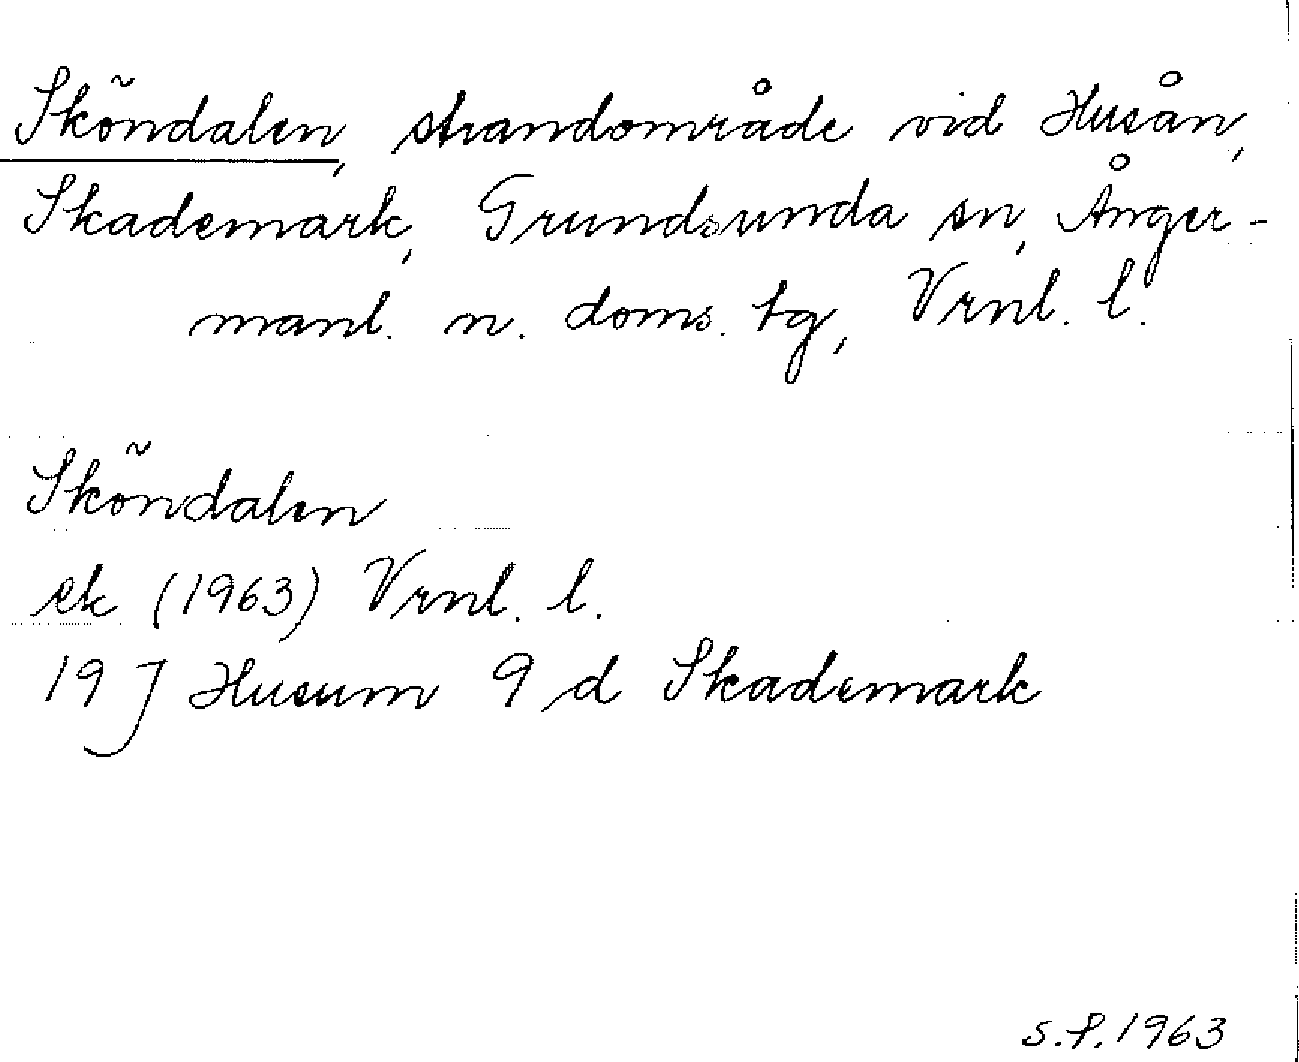 Sköndalen, strandområde vid Husån,
Skademark, Grundsunda sn, Ånger-
manl. n. doms. tg, Vrnl. l.
Sköndalen
ek (1963) Vrnl. l.
19 J Husum 9 d Skademark
S.P. 1963